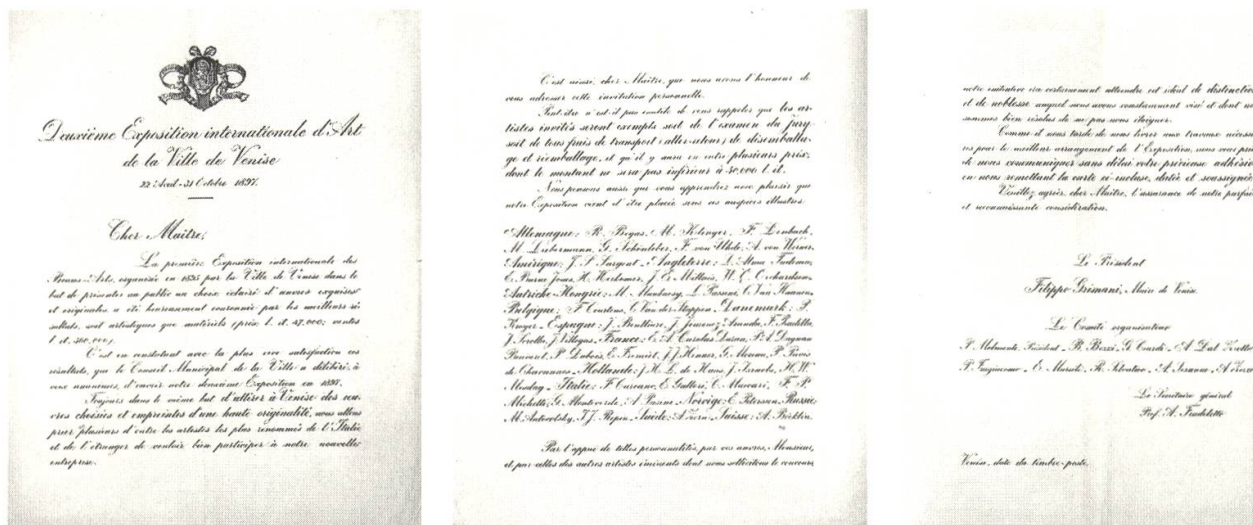 Deuxième Exposition internationale d'Art
de la Ville de Venise
22 Avril - 31 Octobre 1897.
Cher Maître,
La première Exposition internationale des
Beaux-Arts, organisée en 1895 par la Ville de Venise dans le
but de présenter au public un choix éclairé d'œuvres exquises
et originales a été heureusement couronnée par les meilleurs ré-
sultats, soit artistiques que matériels (prix l. it. 47,000; ventes
l. it. 360,000).
C'est en constatant avec la plus vive satisfaction ces
résultats, que le Conseil Municipal de la Ville a délibéré, à
voix unanimes, d'ouvrir notre deuxième Exposition en 1897.
Toujours dans le même but d'attirer à Venise des œu-
vres choisies et empreintes d'une haute originalité, nous allons
prier plusieurs d'entre les artistes les plus renommés de l'Italie
et de l'étranger de vouloir bien participer à notre nouvelle
entreprise.
C'est ainsi, cher Maître, que nous avons l'honneur de
vous adresser cette invitation personnelle.
Peut-être n'est-il pas inutile de vous rappeler que les ar-
tistes invités seront exempts soit de l'examen du Jury
soit de tous frais de transport (aller-retour) de désemballa-
ge et réemballage, et qu'il y aura en outre plusieurs prix,
dont le montant ne sera pas inférieur à l. it.
Nous pensons aussi que vous apprendrez avec plaisir que
notre Exposition vient d'être placée sous ces auspices illustres:
Allemagne: R. Begas, M. Klinger, F. Lenbach,
M. Liebermann, G. Schönleber, F. von Uhde, A. von Werner.
Amérique: J. S. Sargent - Angleterre: L. Alma Tadema,
E. Burne Jones, H. Herkomer, J. E. Millais, W. Q. Orchardson.
Autriche-Hongrie: M. Munkacsy, L. Passini,
Belgique: F. Courtens, C. Van der Stappen - Danemark: P.
Kroyer - Espagne: J. Benlliure, J. Jimenez Aranda, F. Pradilla,
J. Sorolla, J. Villegas - France: E. A. Carolus Duran, P. A. Dagnan
Bouveret, P. Dubois, E. Fremiet, J. J. Henner, G. Moreau, P. Puvis
de Chavannes - Hollande: J. H. L. de Haas, J. Israels, H. W.
Mesdag - Italie: F. Carcano, E. Gallori, C. Maccari, F. P.
Michetti, G. Monteverde, A. Pasini - Norvège: E. Petersen - Russie:
M. Antocolsky, J. J. Repin - Suède: A. Zorn - Suisse: A. Böcklin.
Par l'appui de telles personnalités, par vos œuvres, Monsieur,
et par celles des autres artistes éminents dont nous sollicitons le concours
notre initiative ira certainement atteindre cet idéal de distinction
et de noblesse auquel nous avons constamment visé et dont nous
sommes bien résolus de ne pas nous éloigner.
Comme il nous tarde de nous livrer aux travaux nécessai
res pour le meilleur arrangement de l'Exposition, nous vous prions
de nous communiquer sans délai votre précieuse adhésion
en nous remettant la carte ci-incluse, datée et soussignée.
Veuillez agréer, cher Maître, l'assurance de notre parfaite
et reconnaissante considération.
Le Président
Filippo Grimani, Maire de Venise.
Le Comité organisateur
P. Molmenti, Président - B. Bezzi - G. Ciardi - A. Dal Zotto
P. Fragiacomo - C. Laurenti
Le Secrétaire général
Prof. A. Fradeletto
Venise, date du timbre-poste.